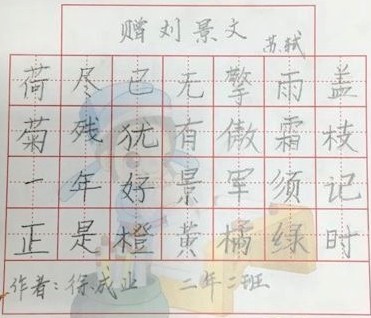 赠刘景文
苏轼
荷尽已无擎雨盖
菊残犹有傲霜枝
一年好景君须记
正是橙黄橘绿时
作者：徐成业 二年二班